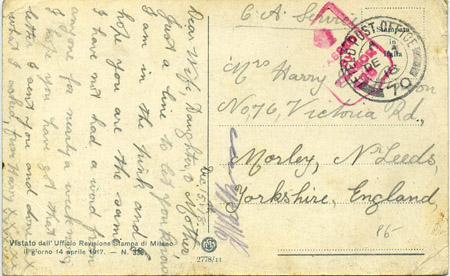 O.A. Service
Stampata
in Italia
FIELD POST OFFICE
DE
18
70
Mrs Harry
No, 76, Victoria
Rd.,
Morley, Nr Leeds,
Yorkshire, England
Dec, 15/18
Dear Wife, Daughter & Mother
Just a line to let you know
I am in the pink and I
hope you are the same.
I have not had a word from
anyone for nearly a week now
I hope you have got that
letter I sent you and done
what I asked from Harry xxxx
Vistato dall' Ufficio Revisione Stampa di Milano
il giorno 14 aprile 1917. — N. 336
2778/11
85-